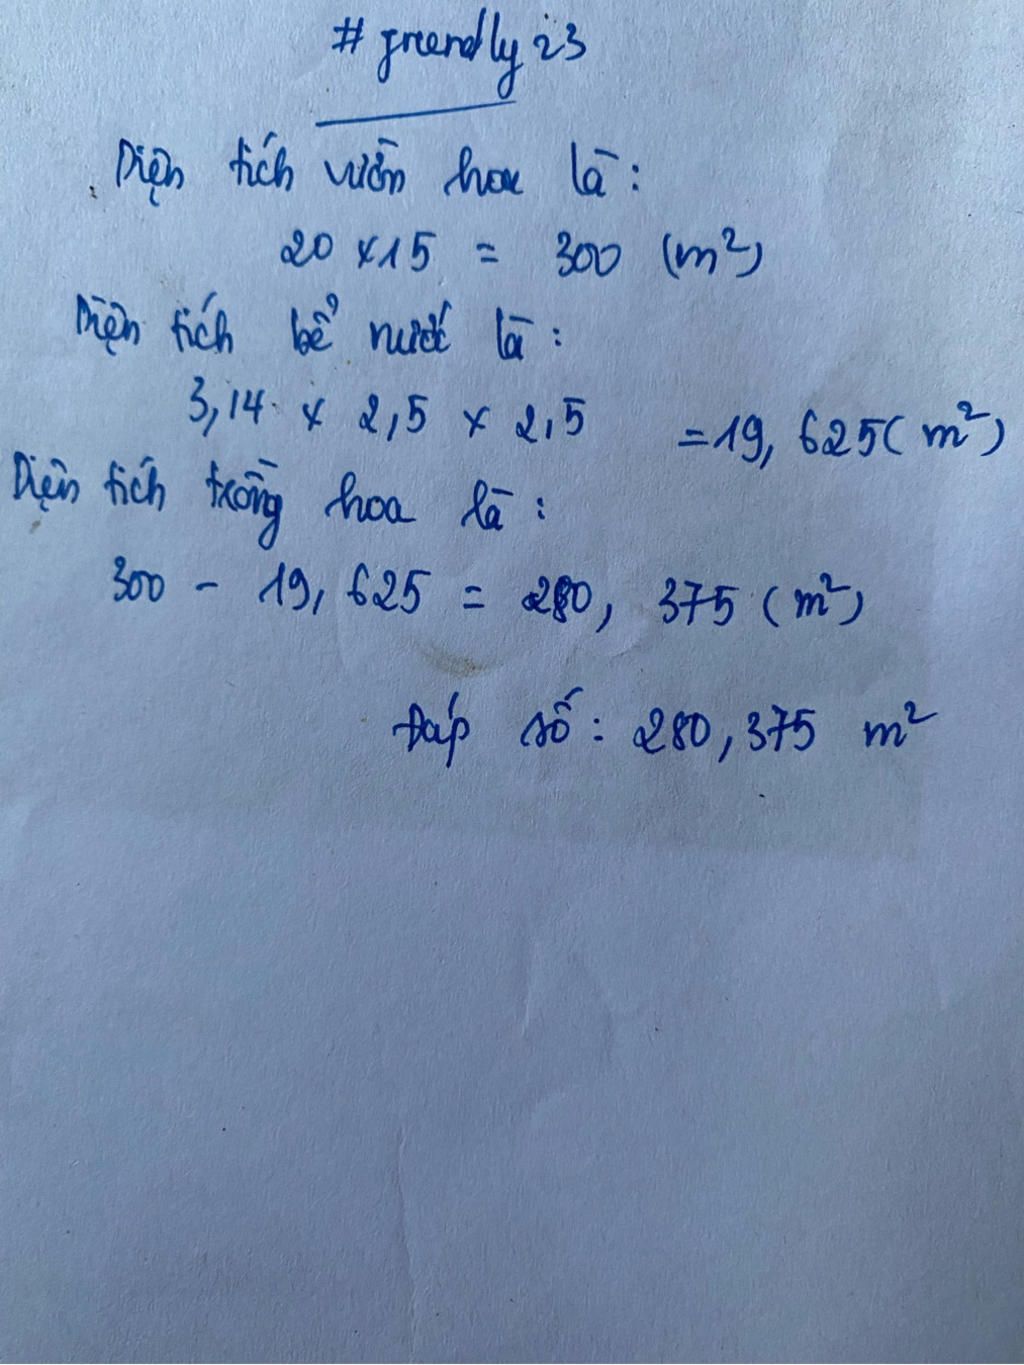 # greendly 23
Diện tích vườn hoa là:
20 x 15 = 300 (m²)
Diện tích bể nước là:
3,14 x 2,5 x 2,5 = 19,625 (m²)
Diện tích trồng hoa là:
300 - 19,625 = 280,375 (m²)
Đáp số: 280,375 m²